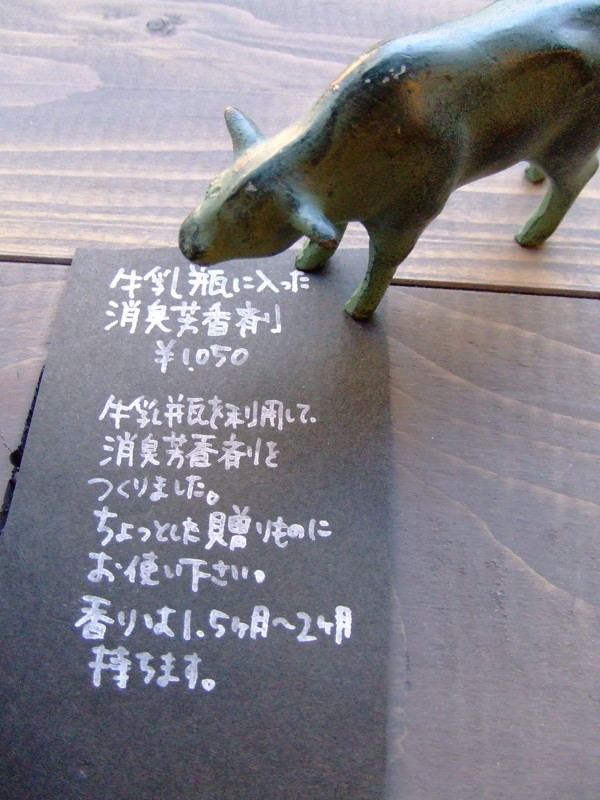 牛乳瓶に入った
消臭芳香剤
¥1,050
牛乳瓶を利用して、
消臭芳香剤を
つくりました。
ちょっとした贈りものに
お使い下さい。
香りは1.5ヶ月〜2ヶ月
持ちます。